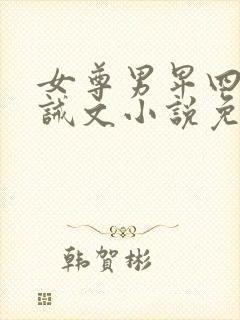 女尊男卑四
誡文小說免
韩賀彬